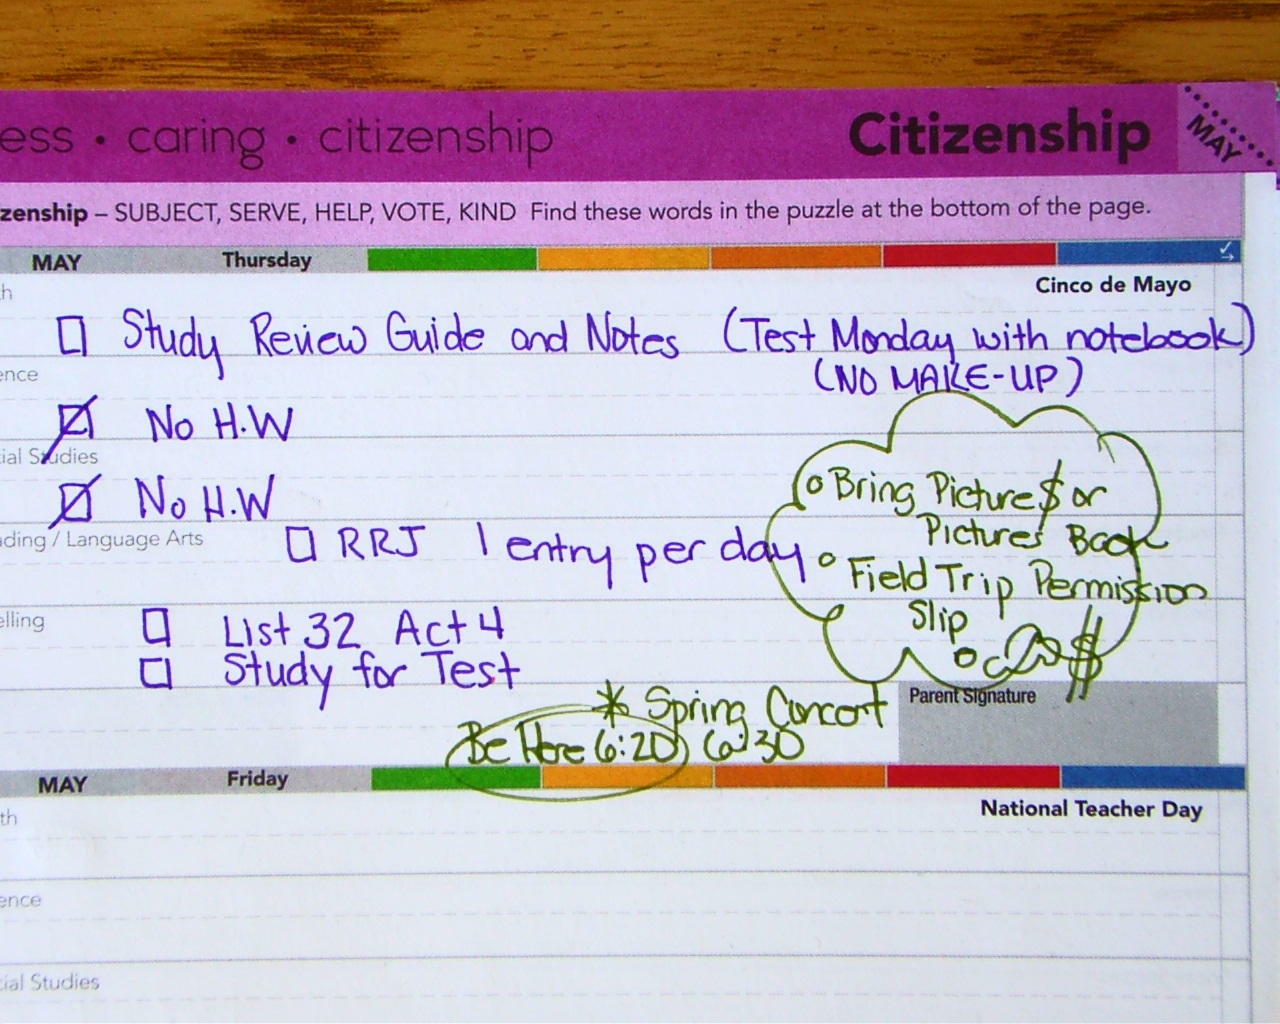 ess • caring • citizenship
Citizenship
MAY
zenship – SUBJECT, SERVE, HELP, VOTE, KIND Find these words in the puzzle at the bottom of the page.
MAY Thursday
Cinco de Mayo
th
Study Review Guide and Notes (Test Monday with notebook)
(NO MAKE-UP)
ence
No H.W
ial Studies
No H.W
ding / Language Arts
RRJ 1 entry per day
Bring Picture$ or
Pictures Book
Field Trip Permission
Slip
$
elling
List 32 Act 4
Study for Test
Parent Signature
* Spring Concert
Be Here 6:20 6:30
MAY Friday
National Teacher Day
th
ence
ial Studies